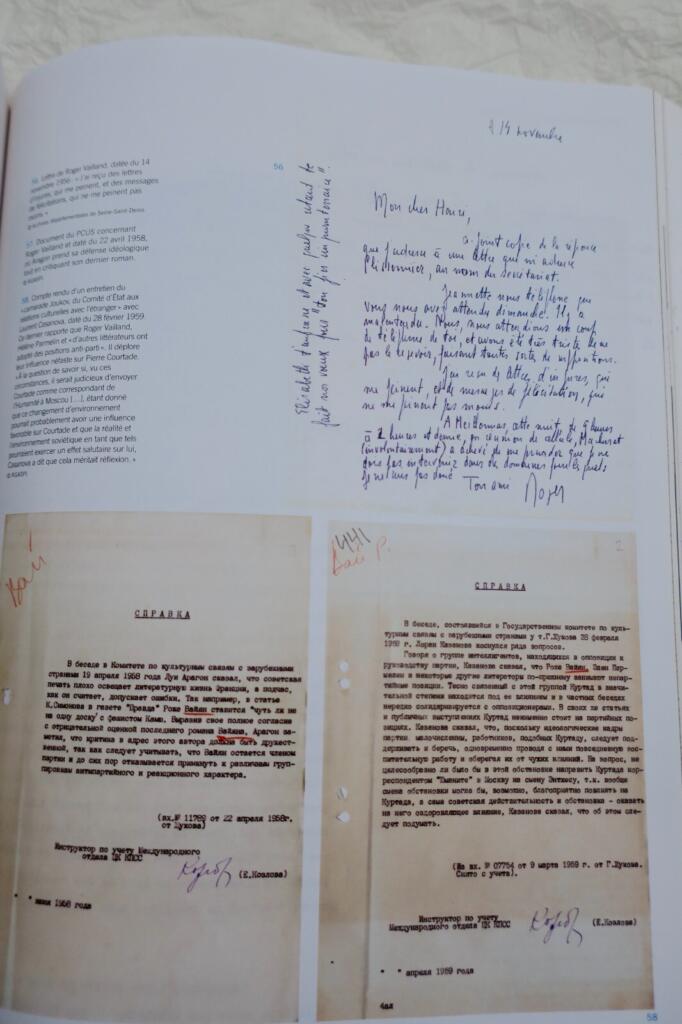 56. Lettre de Roger Vailland, datée du 14
novembre 1956. « J'ai reçu des lettres
d'injures, qui me peinent, et des messages
de félicitations, qui ne me peinent pas
moins. »
57. Document du PCUS concernant
Roger Vailland et daté du 22 avril 1958,
où Aragon prend sa défense idéologique
tout en critiquant son dernier roman.
58. Compte rendu d'un entretien du
« camarade Joukov, du Comité d'État aux
relations culturelles avec l'étranger » avec
Laurent Casanova, daté du 28 février 1959.
Ce dernier rapporte que Roger Vailland,
Hélène Parmelin et « d'autres littérateurs ont
adopté des positions anti-parti ». Il déplore
leur influence néfaste sur Pierre Courtade.
« À la question de savoir si, vu ces
circonstances, il serait judicieux d'envoyer
Courtade comme correspondant de
l'Humanité à Moscou [...], étant donné
que ce changement d'environnement
pourrait probablement avoir une influence
favorable sur Courtade et que la réalité et
l'environnement soviétique en tant que tels
pourraient exercer un effet salutaire sur lui,
Casanova a dit que cela méritait réflexion. »
56
14 novembre
Mon cher Henri,
ci-joint copie de la réponse
que j'adresse à une lettre que m'a adressé
au nom du secrétariat.
Jeannette nous téléphone que
vous nous avez attendus dimanche. Il y a
malentendu. Nous, nous attendions un coup
de téléphone de toi, et avons été très tristes de ne
pas le recevoir, faisant toutes sortes de suppositions.
J'ai reçu des lettres d'injures, qui
me peinent, et des messages de félicitations, qui
ne me peinent pas moins.
A cette nuit, de 9 heures
à 2 heures et demie, en réunion de cellule,
(involontairement) a achevé de me persuader que je ne
dois pas intervenir dans des domaines pour lesquels
je ne suis pas doué. Ton ami Roger
Elisabeth t'embrasse et avec
fait nos vœux pour "ton
Вай
СПРАВКА
В беседе в Комитете по культурным связям с зарубежными
странами 19 апреля 1958 года Луи Арагон сказал, что советская
печать плохо освещает литературную жизнь Франции, а подчас,
как он считает, допускает ошибки. Так например, в статье
К.Симонова в газете "Правда" Роже Вайян ставится "чуть ли не
на одну доску" с фашистом Камю. Выразив свое полное согласие
с отрицательной оценкой последнего романа Вайяна, Арагон за-
метил, что критика в адрес этого автора должна быть дружест-
венной, так как следует учитывать, что Вайян остается членом
партии и до сих пор отказывается примкнуть к различным груп-
пировкам антипартийного и реакционного характера.
(вх.№ 11789 от 22 апреля 1958г.
от Жукова)
Инструктор по учету Международного
отдела ЦК КПСС
(Е.Козлова)
" " июня 1958 года
441
Вай Р.
2
СПРАВКА
В беседе, состоявшейся в Государственном комитете по куль-
турным связям с зарубежными странами у т.Г.Жукова 28 февраля
1959 г. Лоран Казанова коснулся ряда вопросов.
Говоря о группе интеллигентов, находящихся в оппозиции к
руководству партии, Казанова сказал, что Роже Вайян, Элен Пар-
мелен и некоторые другие литераторы по-прежнему занимают непар-
тийные позиции. Тесно связанный с этой группой Куртад в значи-
тельной степени находится под ее влиянием и в частных беседах
нередко солидаризируется с оппозиционерами. В своих же статьях
и публичных выступлениях Куртад неизменно стоит на партийных по-
зициях. Казанова сказал, что, поскольку идеологические кадры
партии малочисленны, работников, подобных Куртаду, следует под-
держивать и беречь, одновременно проводя с ними повседневную вос-
питательную работу и оберегая их от чужих влияний. На вопрос, не
целесообразно ли было бы в этой обстановке направить Куртада кор-
респондентом "Юманите" в Москву на смену т.к. вообще
смена обстановки могла бы, возможно, благоприятно повлиять на
Куртада, а сама советская действительность и обстановка - оказать
на него оздоровляющее влияние, Казанова сказал, что об этом сле-
дует подумать.
(Из вх. № 07754 от 9 марта 1959 г. от Г.Жукова.
Снято с учета).
Инструктор по учету
Международного отдела ЦК КПСС
(Е.Козлова)
" " апреля 1959 года
4ал
58